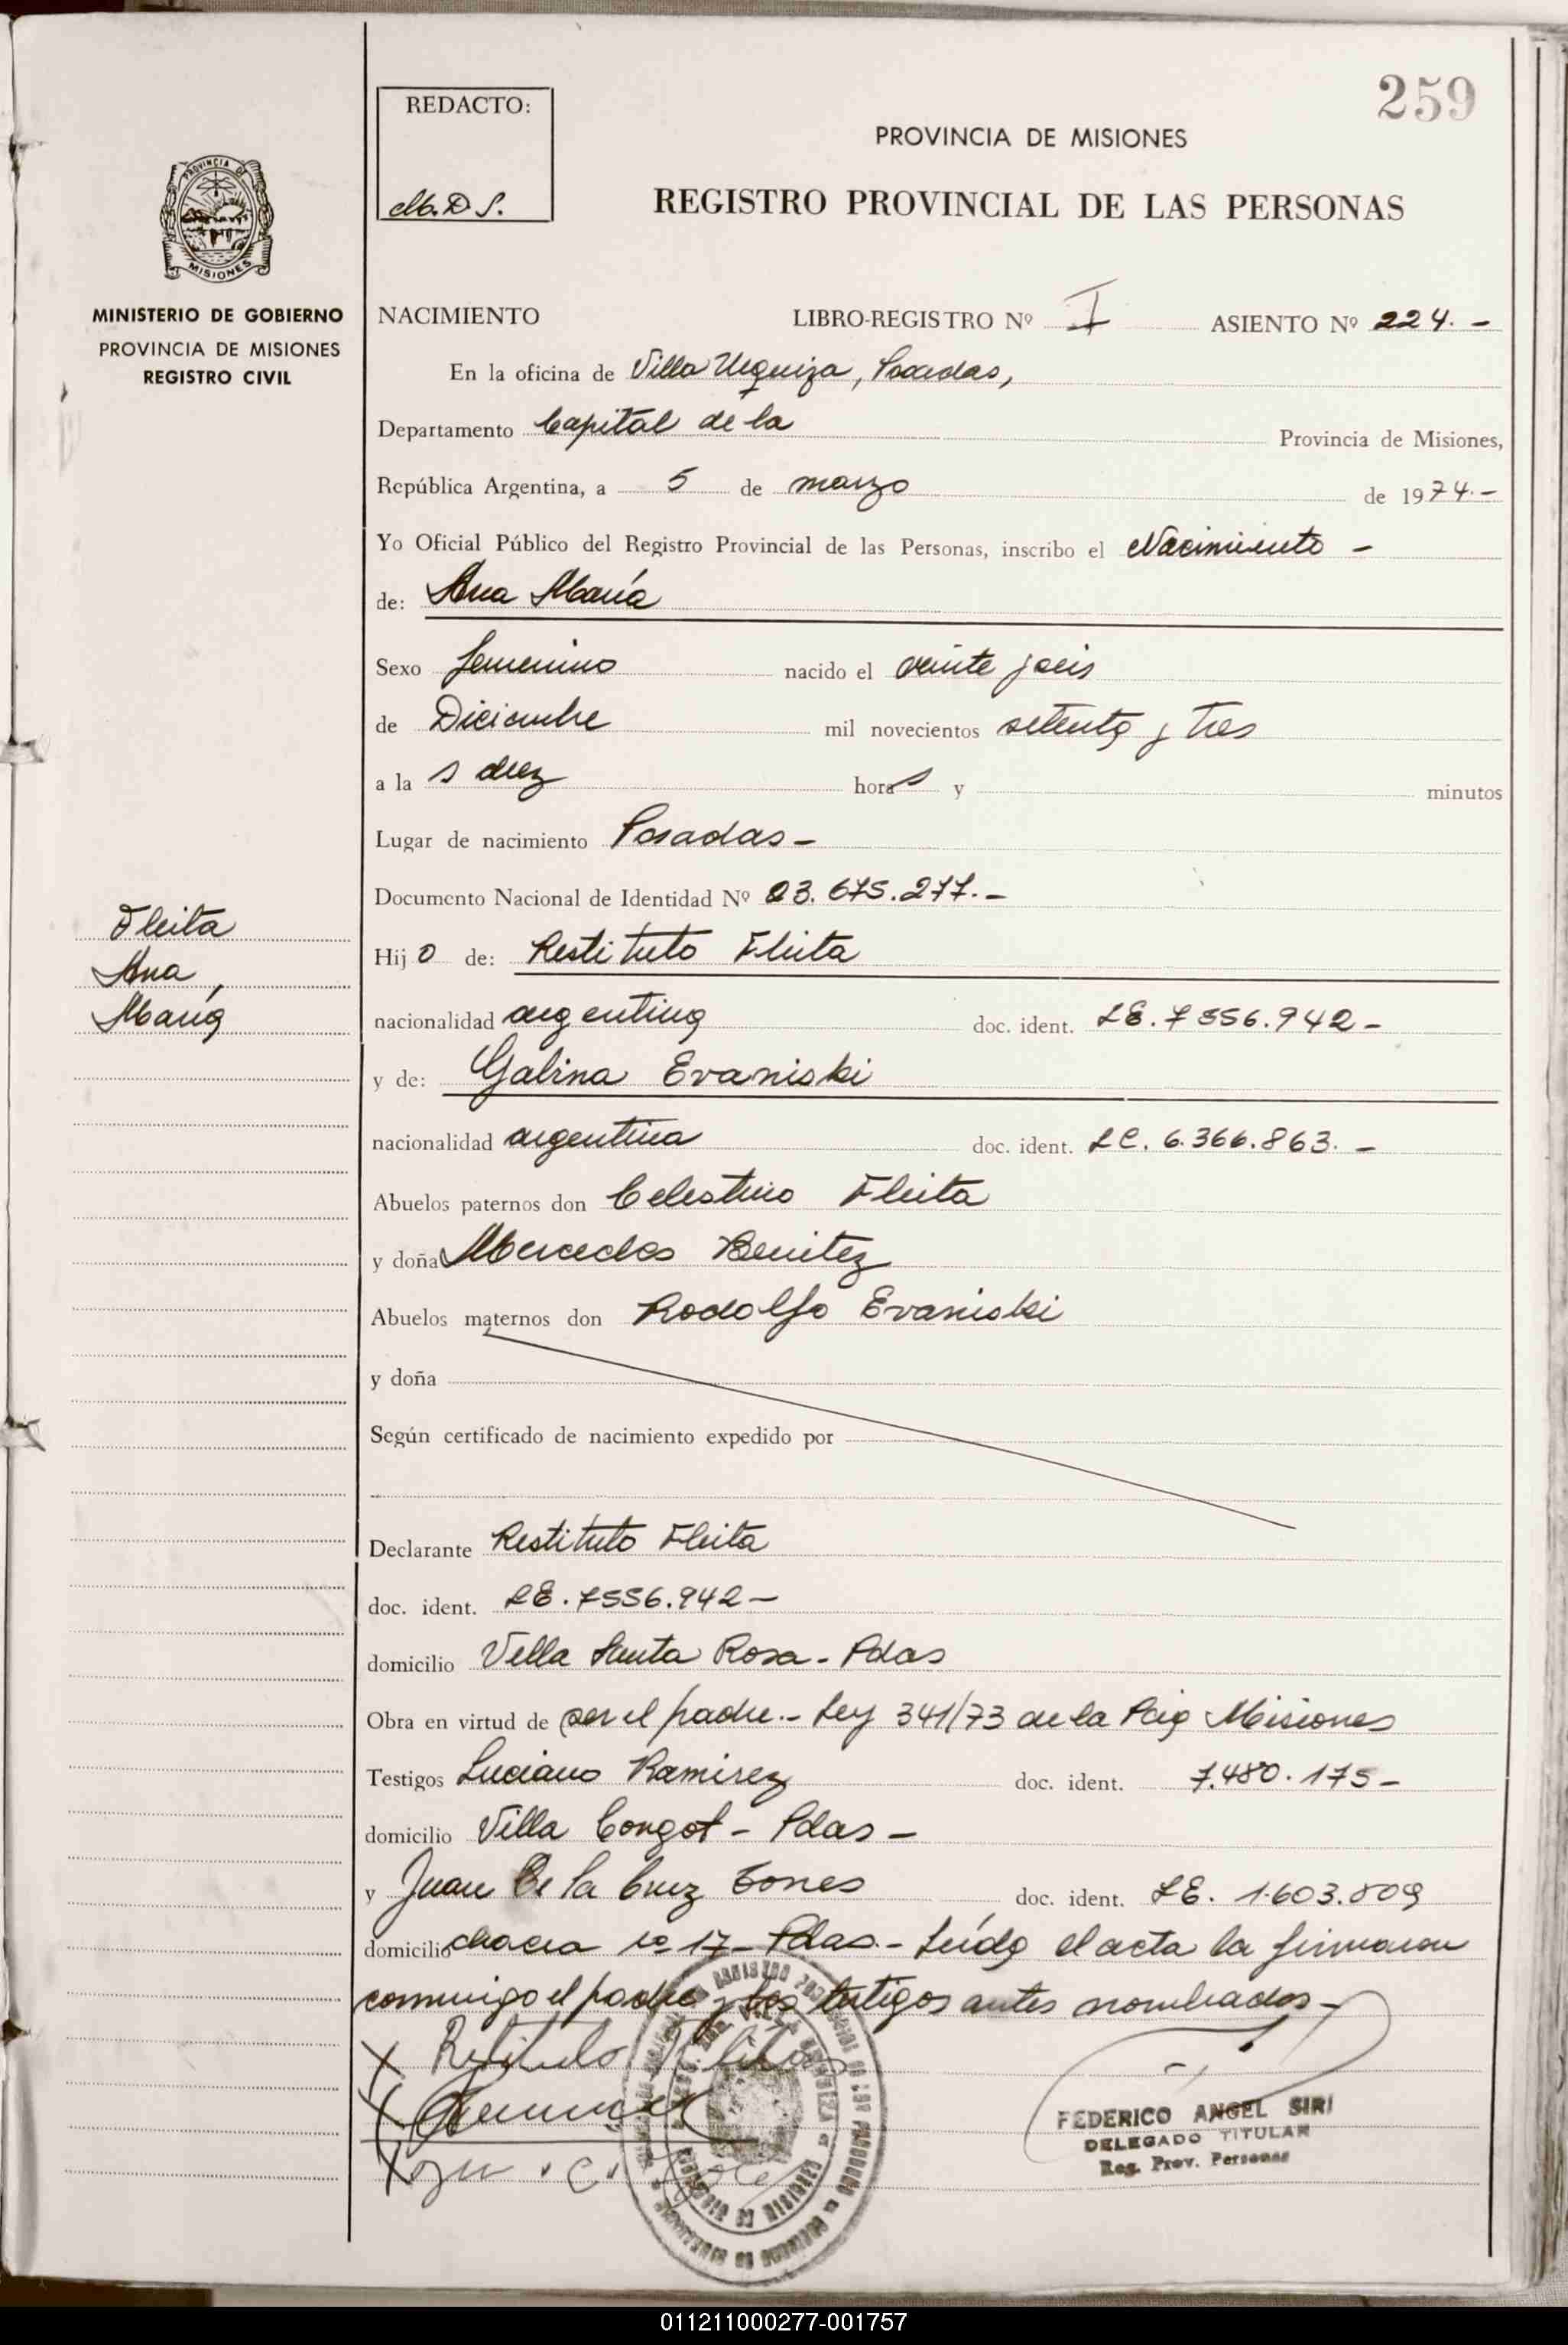 259
REDACTO:
M. D S.
PROVINCIA DE MISIONES
REGISTRO PROVINCIAL DE LAS PERSONAS
PROVINCIA DE
MISIONES
MINISTERIO DE GOBIERNO
PROVINCIA DE MISIONES
REGISTRO CIVIL
NACIMIENTO LIBRO-REGISTRO Nº I ASIENTO Nº 224.-
En la oficina de Villa Urquiza, Posadas,
Departamento Capital de la Provincia de Misiones,
República Argentina, a 5 de marzo de 1974.-
Yo Oficial Público del Registro Provincial de las Personas, inscribo el Nacimiento -
de: Ana María
Sexo femenino nacido el veinte y seis
de Diciembre mil novecientos setenta y tres
a la s diez horas y minutos
Lugar de nacimiento Posadas -
Documento Nacional de Identidad Nº 23.675.277.-
Fleita
Ana
María
Hij o de: Restituto Fleita
nacionalidad argentina doc. ident. LE. 7556.942-
y de: Galina Evaniski
nacionalidad argentina doc. ident. LC. 6.366.863. -
Abuelos paternos don Celestino Fleita
y doña Mercedes Benitez
Abuelos maternos don Rodolfo Evaniski
y doña
Según certificado de nacimiento expedido por
Declarante Restituto Fleita
doc. ident. LE. 7556.942-
domicilio Villa Santa Rosa - Pdas
Obra en virtud de ser el padre.- Ley 341/73 de la Pcia Misiones
Testigos Luciano Ramirez doc. ident. 7.480.175-
domicilio Villa Bongot - Pdas -
y Juan De la Cruz Torres doc. ident. LE. 1.603.809
domicilio chacra nº 17 - Pdas.- Leída el acta la firmaron
conmigo el padre y los testigos antes nombrados -
X Restituto Fleita
FEDERICO ANGEL SIRI
DELEGADO TITULAR
Reg. Prov. Personas
011211000277-001757